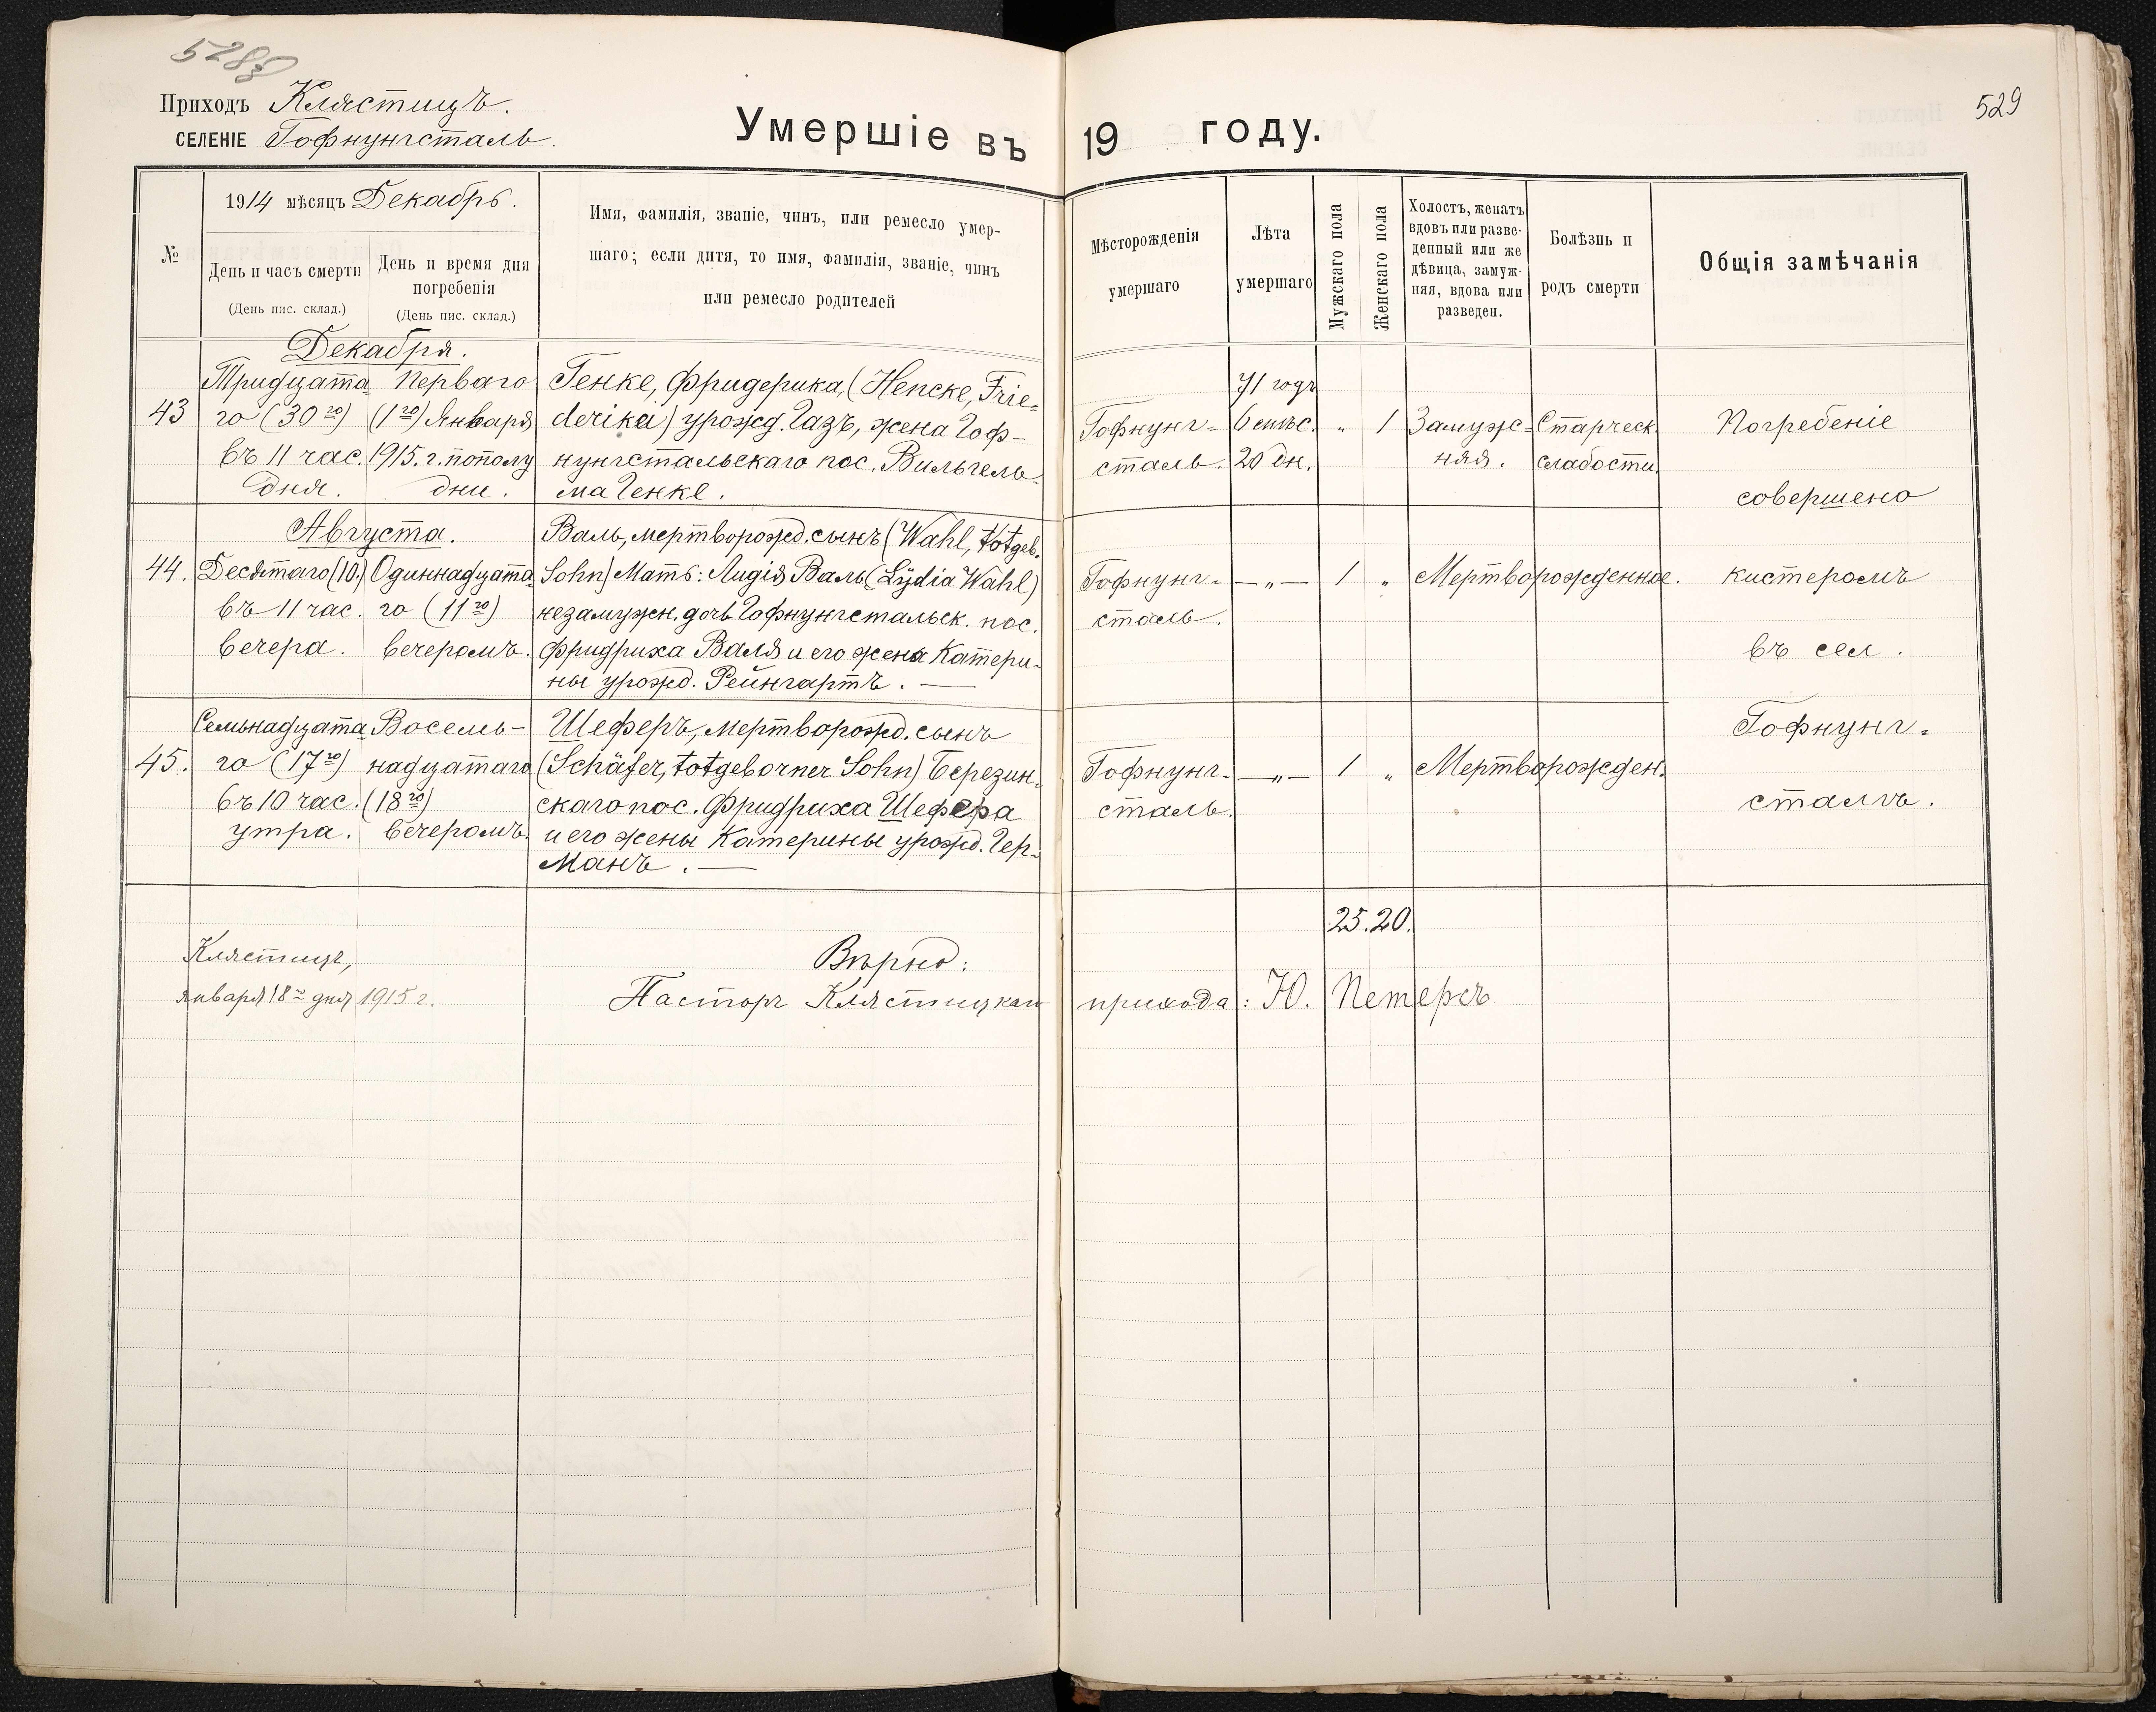 528
Приходъ Клястицъ.
СЕЛЕНІЕ Гофнунгсталь.
Умершіе въ 19 году.
529
№
1914 мѣсяцъ Декабрь.
День и часъ смерти
(День пис. склад.)
День и время дня
погребенія
(День пис. склад.)
Имя, фамилія, званіе, чинъ, или ремесло умер-
шаго; если дитя, то имя, фамилія, званіе, чинъ
или ремесло родителей
Мѣсторожденія
умершаго
Лѣта
умершаго
Мужскаго пола
Женскаго пола
Холостъ, женатъ
вдовъ или разве-
денный или же
дѣвица, замуж-
няя, вдова или
разведен.
Болѣзнь и
родъ смерти
Общія замѣчанія
Декабря.
43
Тридцата-
го (30го)
въ 11 час.
дня.
Перваго
(1го) Января
1915. г. пополу
дни.
Генке, Фридерика, (Hencke, Frie-
derika) урожд. Газъ, жена Гоф-
нунгстальскаго пос. Вильгель-
ма Генке.
Гофнунг-
сталь.
71 годъ
6 мѣс.
20 дн.
„ 1
Замуж-
няя.
Старческ.
слабости.
Погребеніе
совершено
кистеромъ
въ сел.
Гофнунг-
сталъ.
Августа.
44.
Десятаго (10.)
въ 11 час.
вечера.
Одиннадцата-
го (11го)
вечеромъ.
Валь, мертворожд. сынъ (Wahl, totgeb.
Sohn) Мать: Лидія Валь (Lydia Wahl)
незамужн. дочь Гофнунгстальск. пос.
Фридриха Валя и его жена Катери-
ны урожд. Рейнгартъ. —
Гофнунг-
сталь.
— „ —
1 „
Мертворожденное.
45.
Семьнадцата-
го (17го)
въ 10 час.
утра.
Восемь-
надцатаго
(18го)
вечеромъ.
Шеферъ, мертворожд. сынъ
(Schäfer, totgeborner Sohn) Березин-
скаго пос. Фридриха Шефера
и его жены Катерины урожд. Гер-
манъ. —
Гофнунг-
сталь.
— „ —
1 „
Мертворожден.
25. 20.
Клястицъ,
января 18го дня 1915 г.
Вѣрно:
Пасторъ Клястицкаго прихода: Ю. Петерсъ